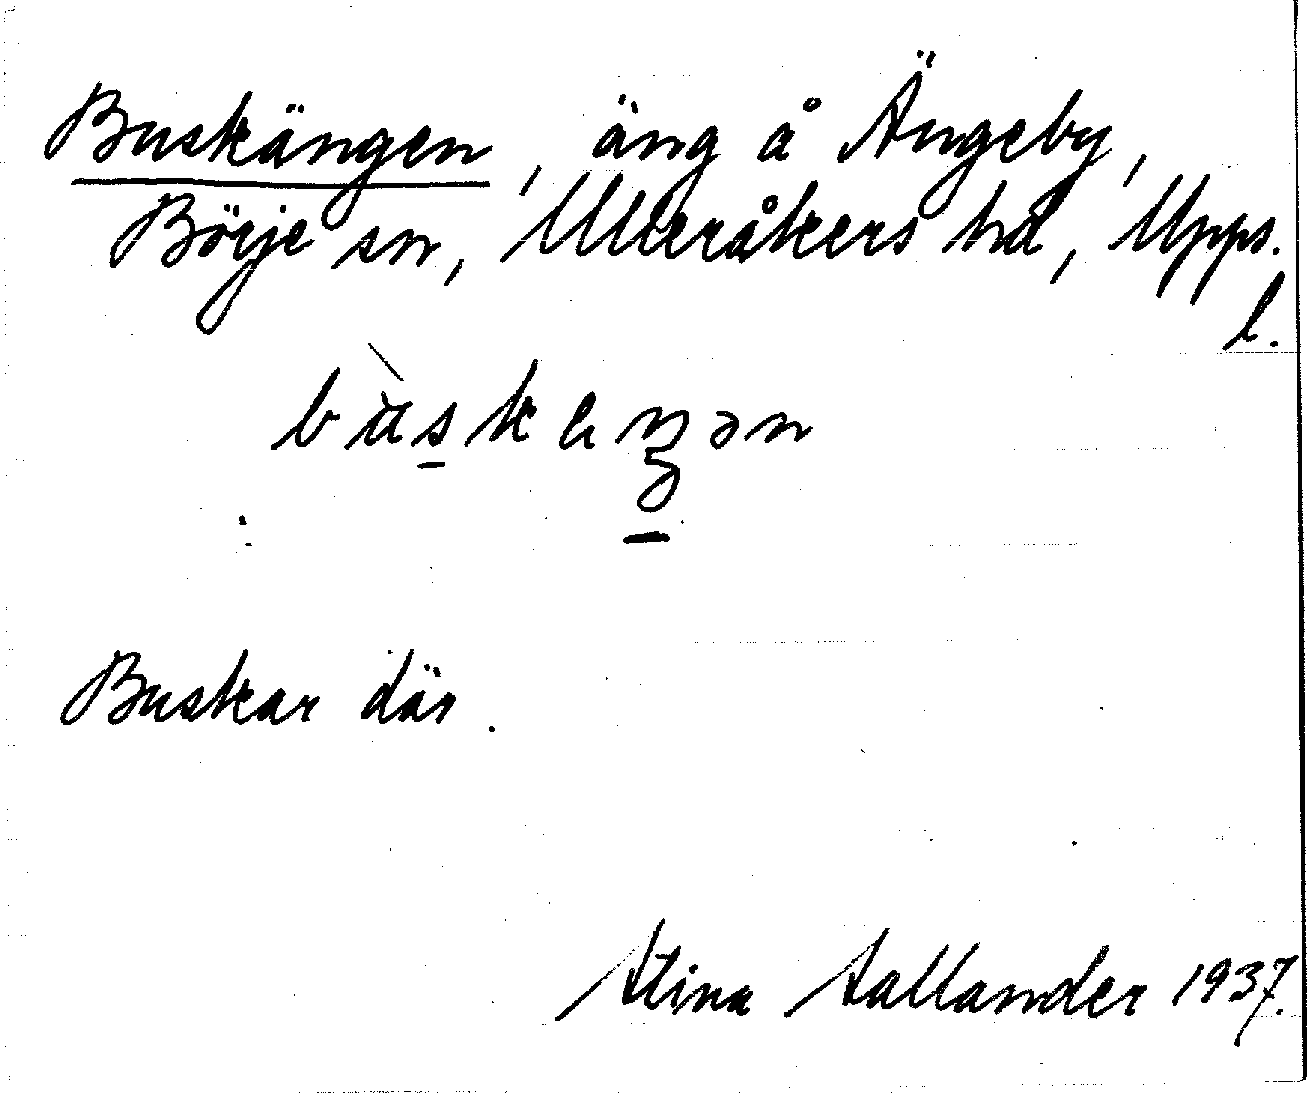 Buskängen, äng å Ängeby,
Börje sn, Ulleråkers hd, Upps.
l.
Buskar där.
Stina Sallander 1937.